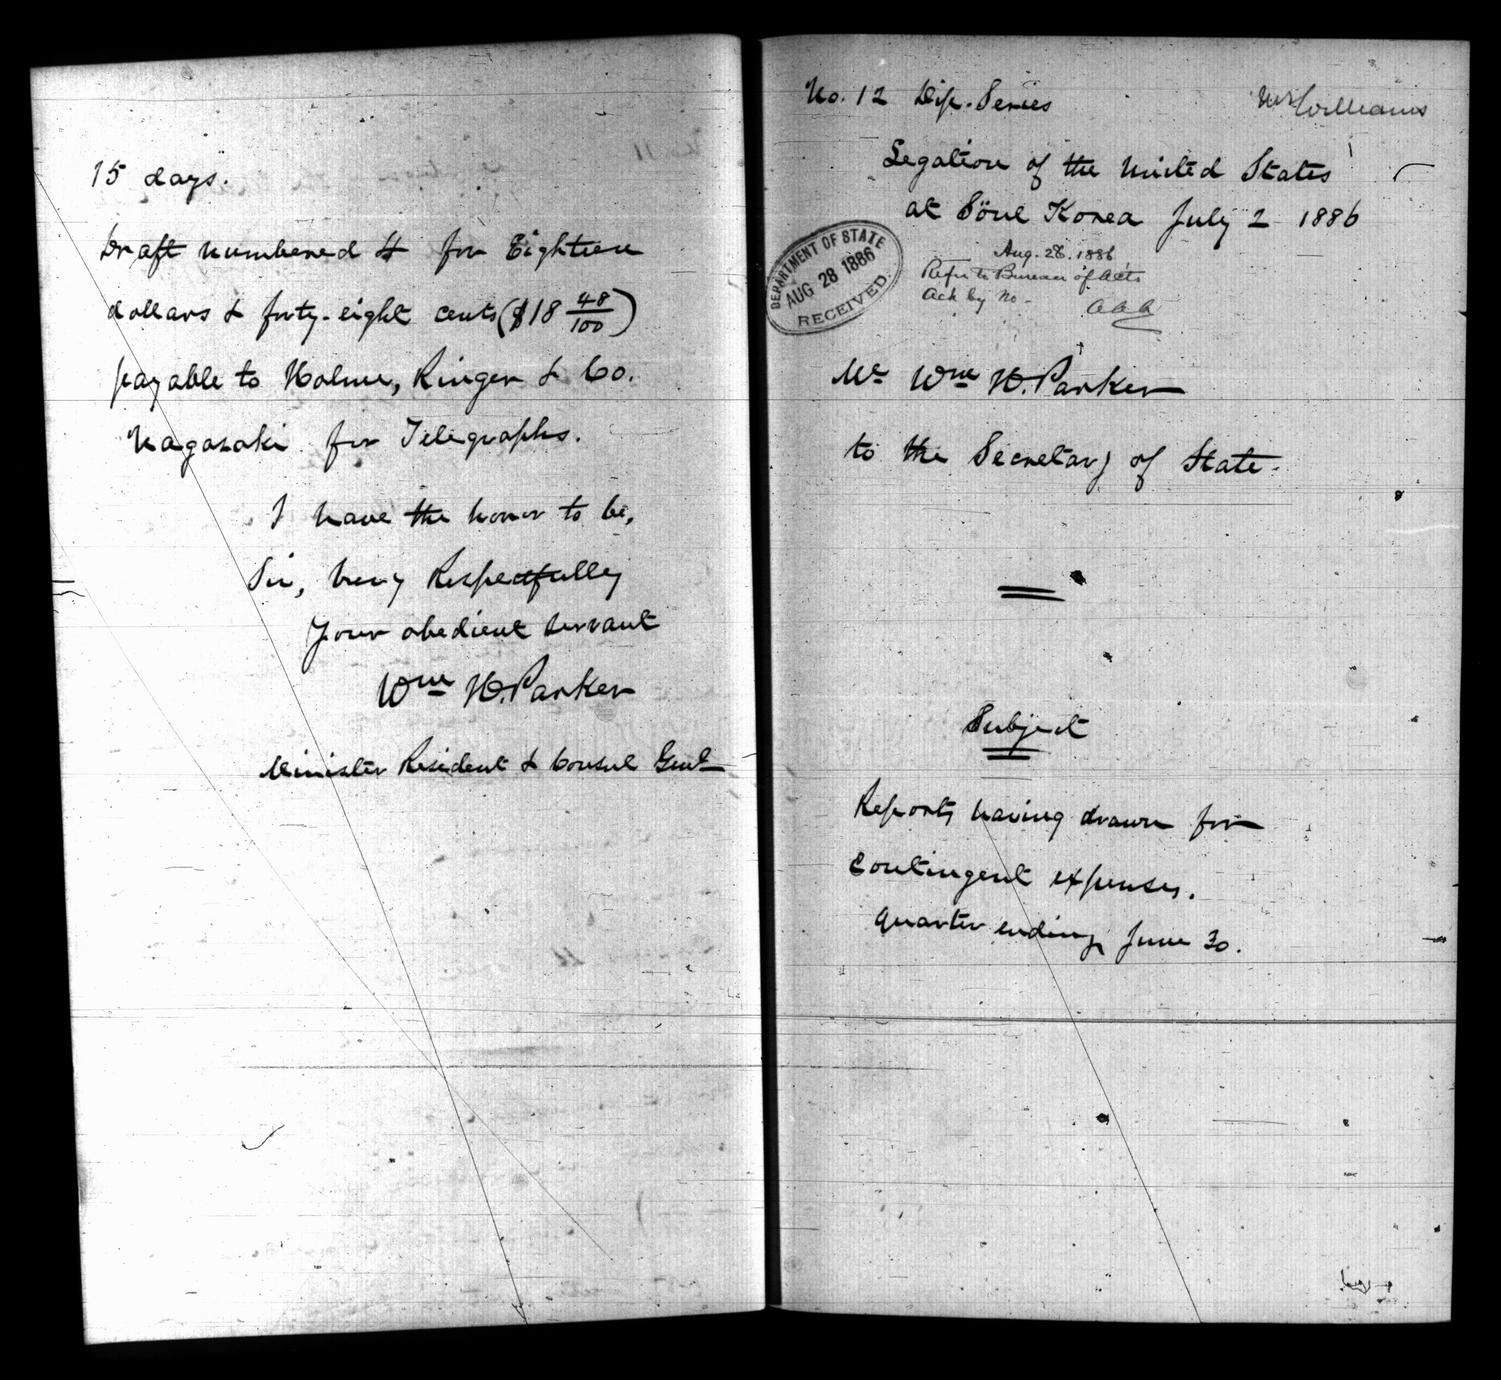 15 days.
Draft numbered 4 for Eighteen
dollars & forty-eight cents ($18 48/100)
payable to Holme, Ringer & Co.
Nagasaki for Telegraphs.
I have the honor to be,
Sir, Very Respectfully
Your obedient servant
Wm H. Parker
Minister Resident & Consul Genl
No. 12 Dip. Series
McWilliams
Legation of the United States
at Söul Korea July 2 1886
DEPARTMENT OF STATE
AUG 28 1886
RECEIVED
Aug. 28. 1886
Refer to Bureau of Accts
Ack by No -
Mr Wm H. Parker
to the Secretary of State.
Subject
Reports having drawn for
Contingent expenses.
Quarter ending June 30.